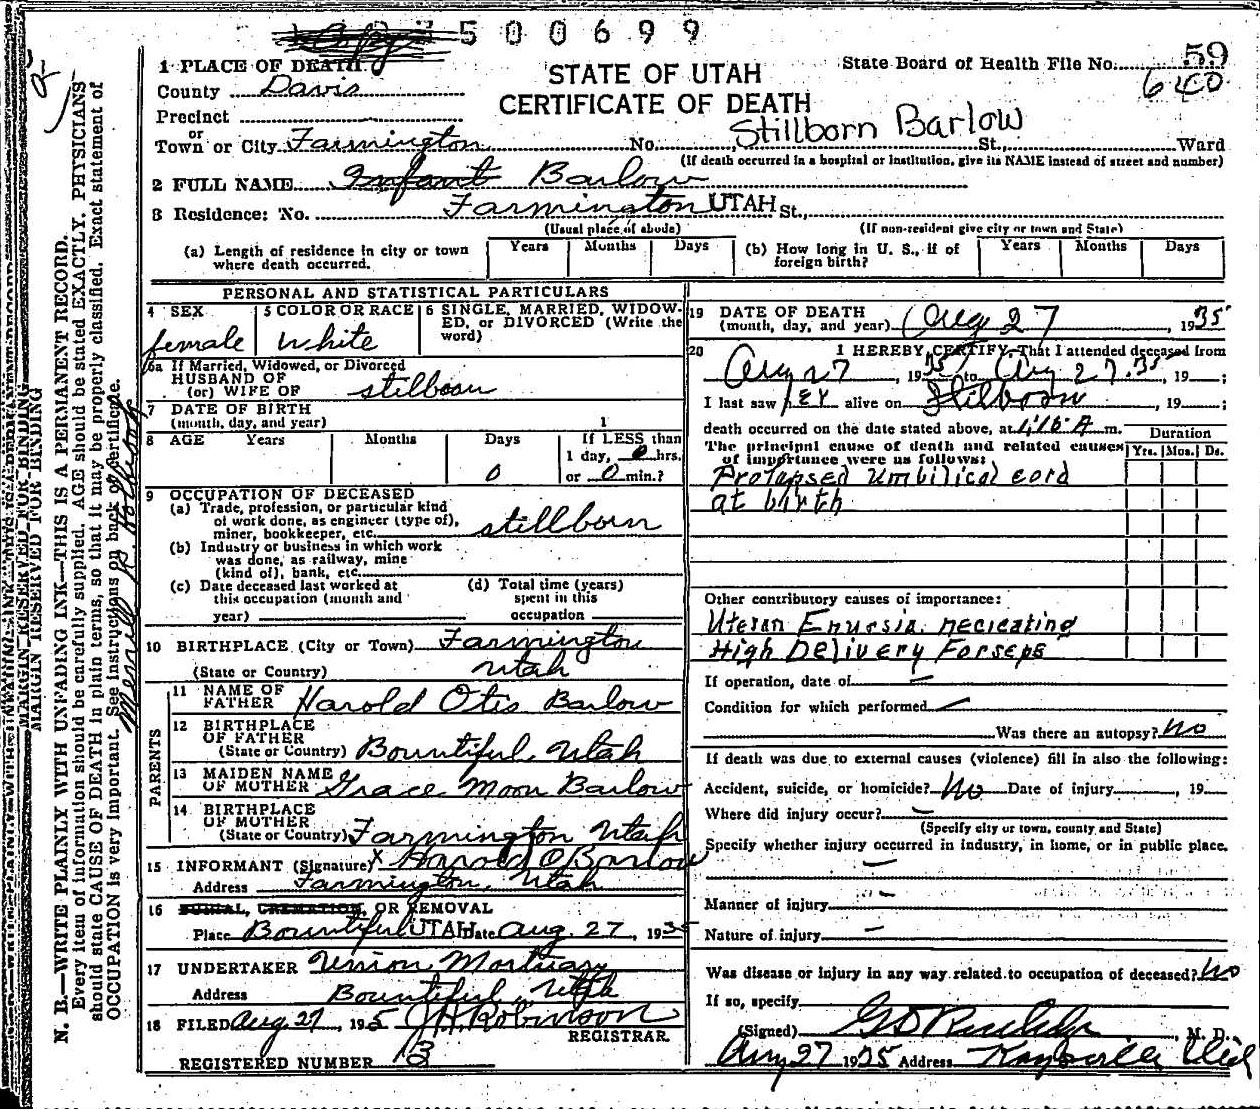 500699
59
640
1 PLACE OF DEATH
STATE OF UTAH
CERTIFICATE OF DEATH
State Board of Health File No.
County Davis
Precinct
or
Town or City Farmington No. Stillborn Barlow St., Ward
(If death occurred in a hospital or institution, give its NAME instead of street and number)
2 FULL NAME Infant Barlow
3 Residence: No. Farmington UTAH St.,
(Usual place of abode) (If non-resident give city or town and State)
(a) Length of residence in city or town where death occurred. Years Months Days (b) How long in U. S., if of foreign birth? Years Months Days
PERSONAL AND STATISTICAL PARTICULARS
4 SEX female
5 COLOR OR RACE White
6 SINGLE, MARRIED, WIDOWED, or DIVORCED (Write the word)
6a If Married, Widowed, or Divorced
HUSBAND OF
(or) WIFE OF stillborn
7 DATE OF BIRTH
(month, day, and year) 1
8 AGE Years Months Days If LESS than
1 day, 0 hrs.
0 or 0 min.?
9 OCCUPATION OF DECEASED
(a) Trade, profession, or particular kind
of work done, as engineer (type of),
miner, bookkeeper, etc. stillborn
(b) Industry or business in which work
was done, as railway, mine
(kind of), bank, etc.
(c) Date deceased last worked at
this occupation (month and
year)
(d) Total time (years)
spent in this
occupation
10 BIRTHPLACE (City or Town) Farmington
(State or Country) Utah
PARENTS
11 NAME OF FATHER Harold Otis Barlow
12 BIRTHPLACE OF FATHER
(State or Country) Bountiful, Utah
13 MAIDEN NAME OF MOTHER Grace Moon Barlow
14 BIRTHPLACE OF MOTHER
(State or Country) Farmington Utah
15 INFORMANT (Signature) x Harold O Barlow
Address Farmington, Utah
16 BURIAL, CREMATION, OR REMOVAL
Place Bountiful UTAH Date Aug. 27, 1935
17 UNDERTAKER Union Mortuary
Address Bountiful, Utah
18 FILED Aug. 27, 1935 J.H. Robinson
REGISTRAR.
REGISTERED NUMBER 13
19 DATE OF DEATH
(month, day, and year) Aug 27, 1935
20 I HEREBY CERTIFY, That I attended deceased from
Aug 27, 1935 to Aug 27.35, 19 ;
I last saw her alive on Stilborn, 19 ;
death occurred on the date stated above, at A m.
The principal cause of death and related causes
of importance were as follows:
Duration
Yrs. Mos. Ds.
Prolapsed Umbilical cord
at birth
Other contributory causes of importance:
Uteran Enursia. necicating
High Delivery Forseps
If operation, date of
Condition for which performed
Was there an autopsy? No
If death was due to external causes (violence) fill in also the following:
Accident, suicide, or homicide? No Date of injury , 19
Where did injury occur?
(Specify city or town, county and State)
Specify whether injury occurred in industry, in home, or in public place.
Manner of injury
Nature of injury
Was disease or injury in any way related to occupation of deceased? No
If so, specify
(Signed) M. D.
Aug 27 1935 Address Kaysville Utah
MARGIN RESERVED FOR BINDING
N. B.—WRITE PLAINLY WITH UNFADING INK—THIS IS A PERMANENT RECORD.
Every item of information should be carefully supplied. AGE should be stated EXACTLY. PHYSICIANS
should state CAUSE OF DEATH in plain terms, so that it may be properly classified. Exact statement of
OCCUPATION is very important. See instructions on back of certificate.